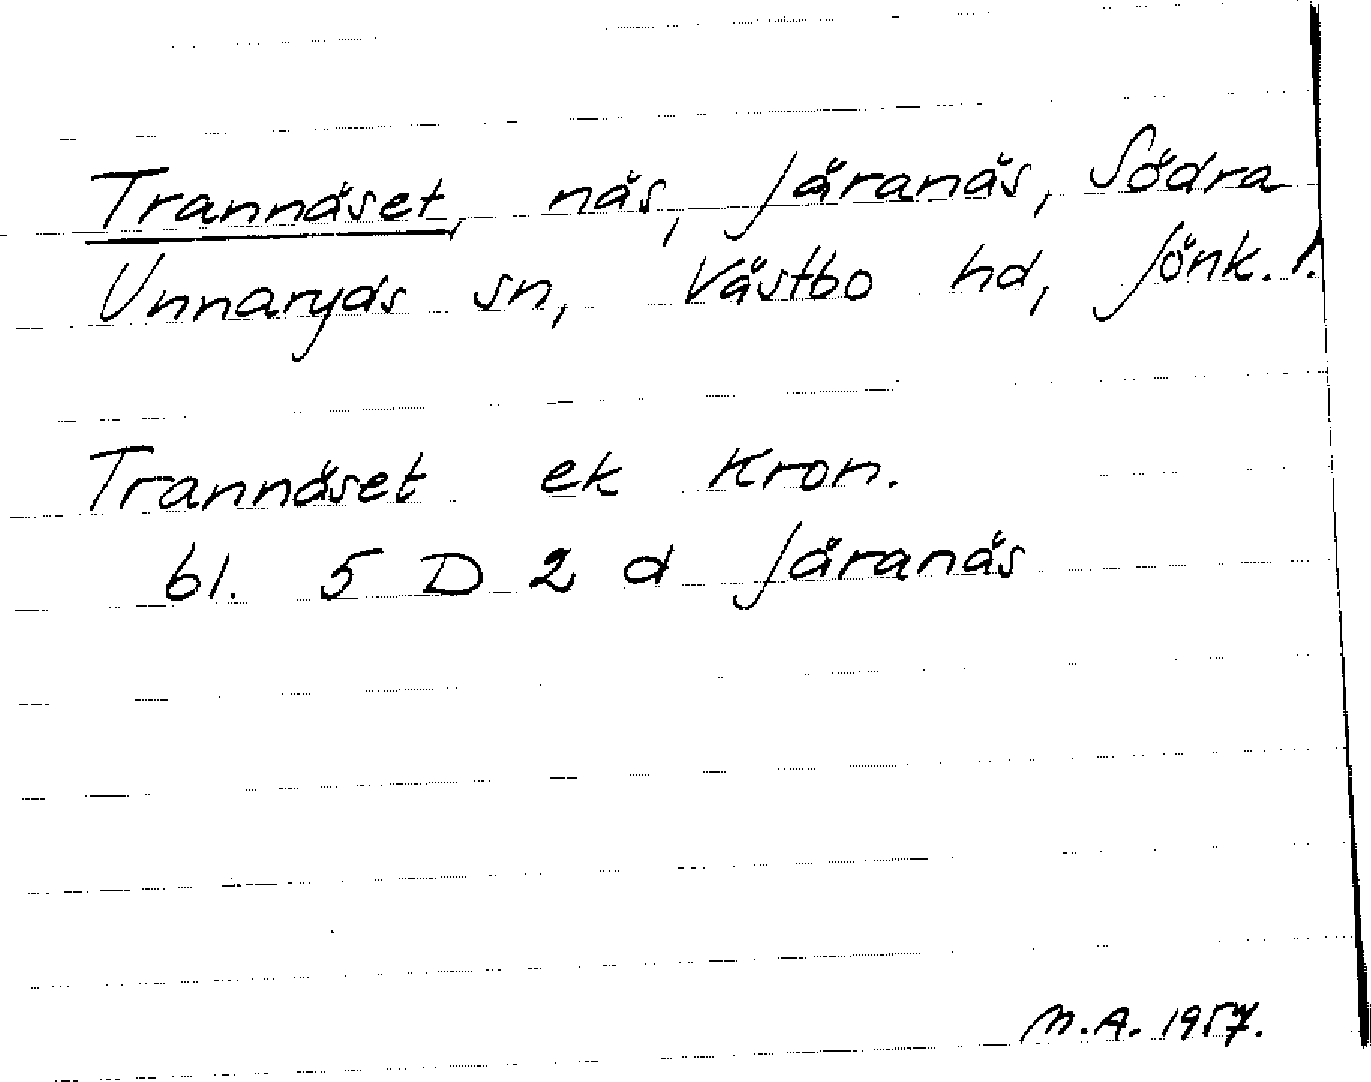 Trannäset, näs, Järanäs, Södra
Unnaryds sn, Västbo hd, Jönk. l.
Trannäset ek Kron.
bl. 5 D 2 d Järanäs
M.A. 1957.